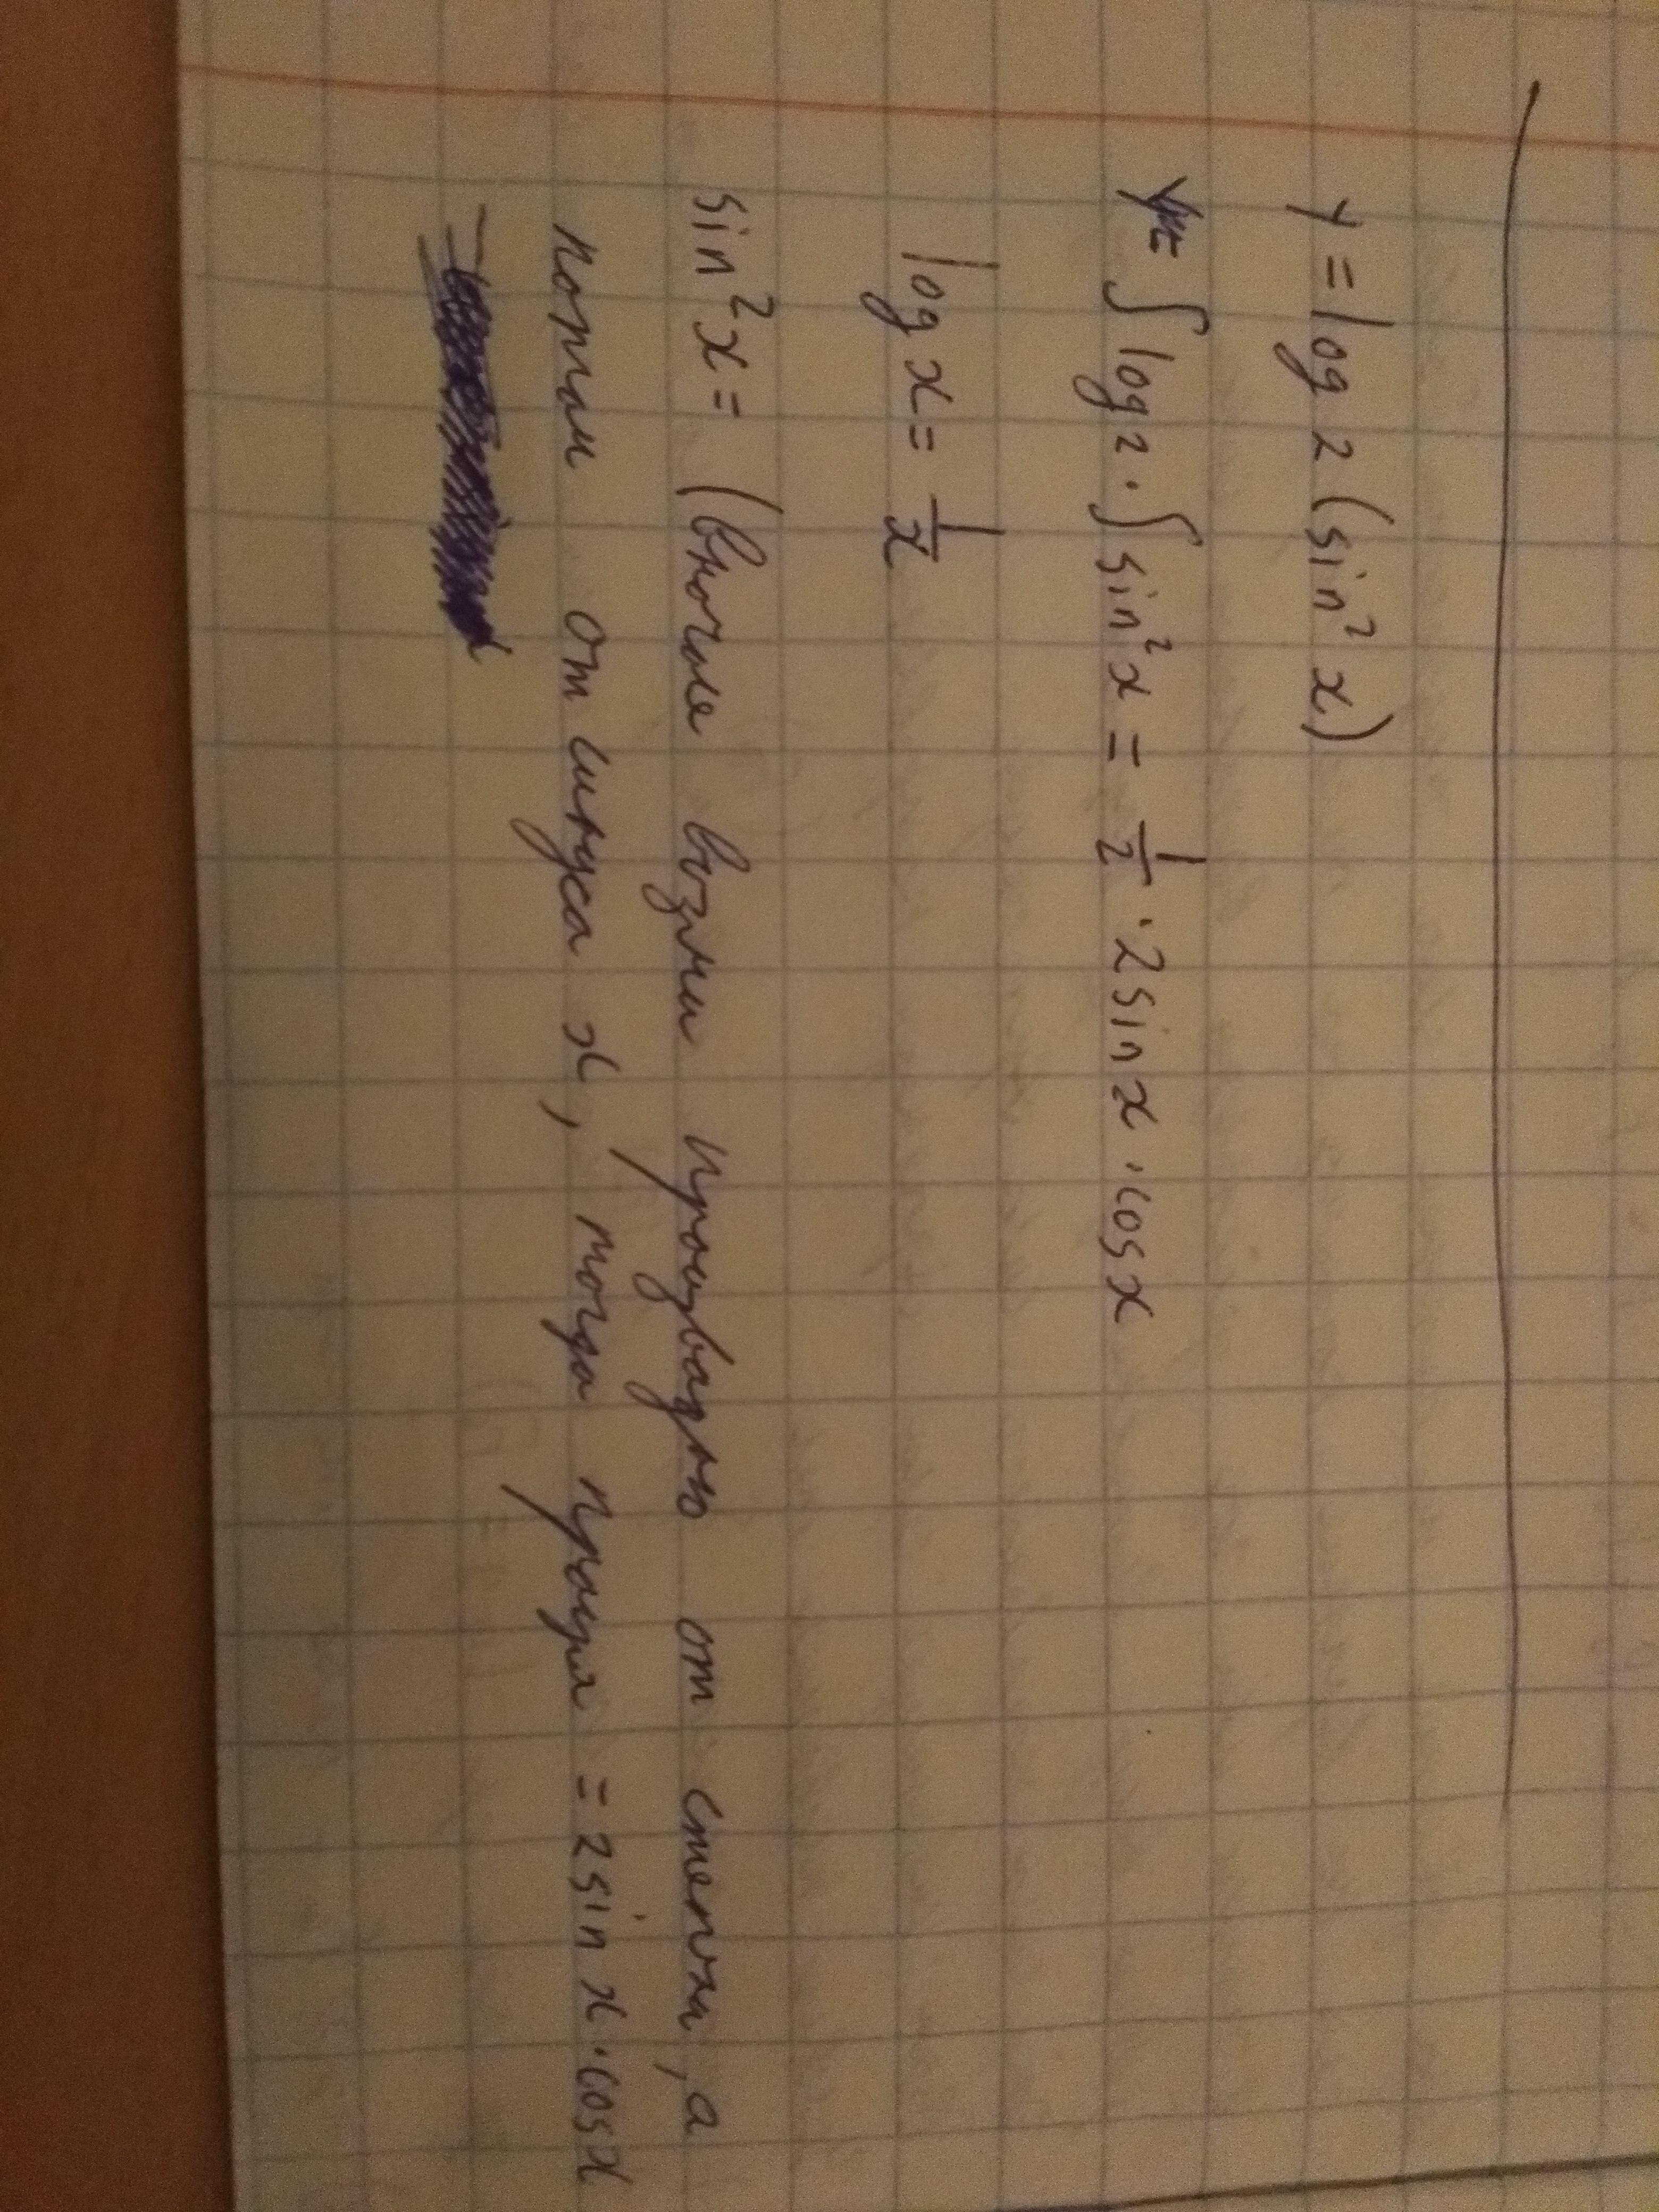 y = log 2 (sin² x)
y = ∫ log 2 · ∫ sin² x = 1/2 · 2 sin x · cos x
log x = 1/x
sin² x = (вночале возми произвадную от степени, а
потом от синуса x, тогда произв = 2 sin x · cos x